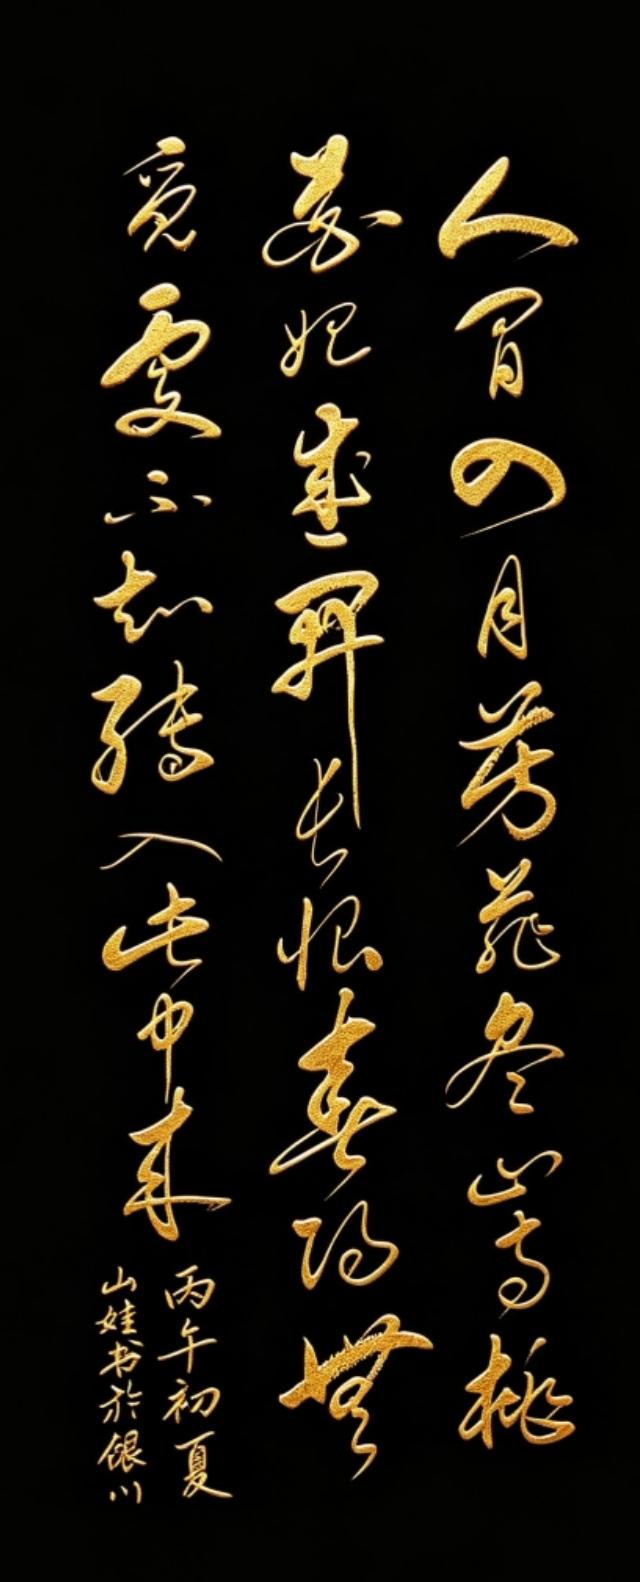 人间四月芳菲尽山寺桃
花始盛開长恨春归無
觅處不知轉入此中来
丙午初夏
山娃书於銀川